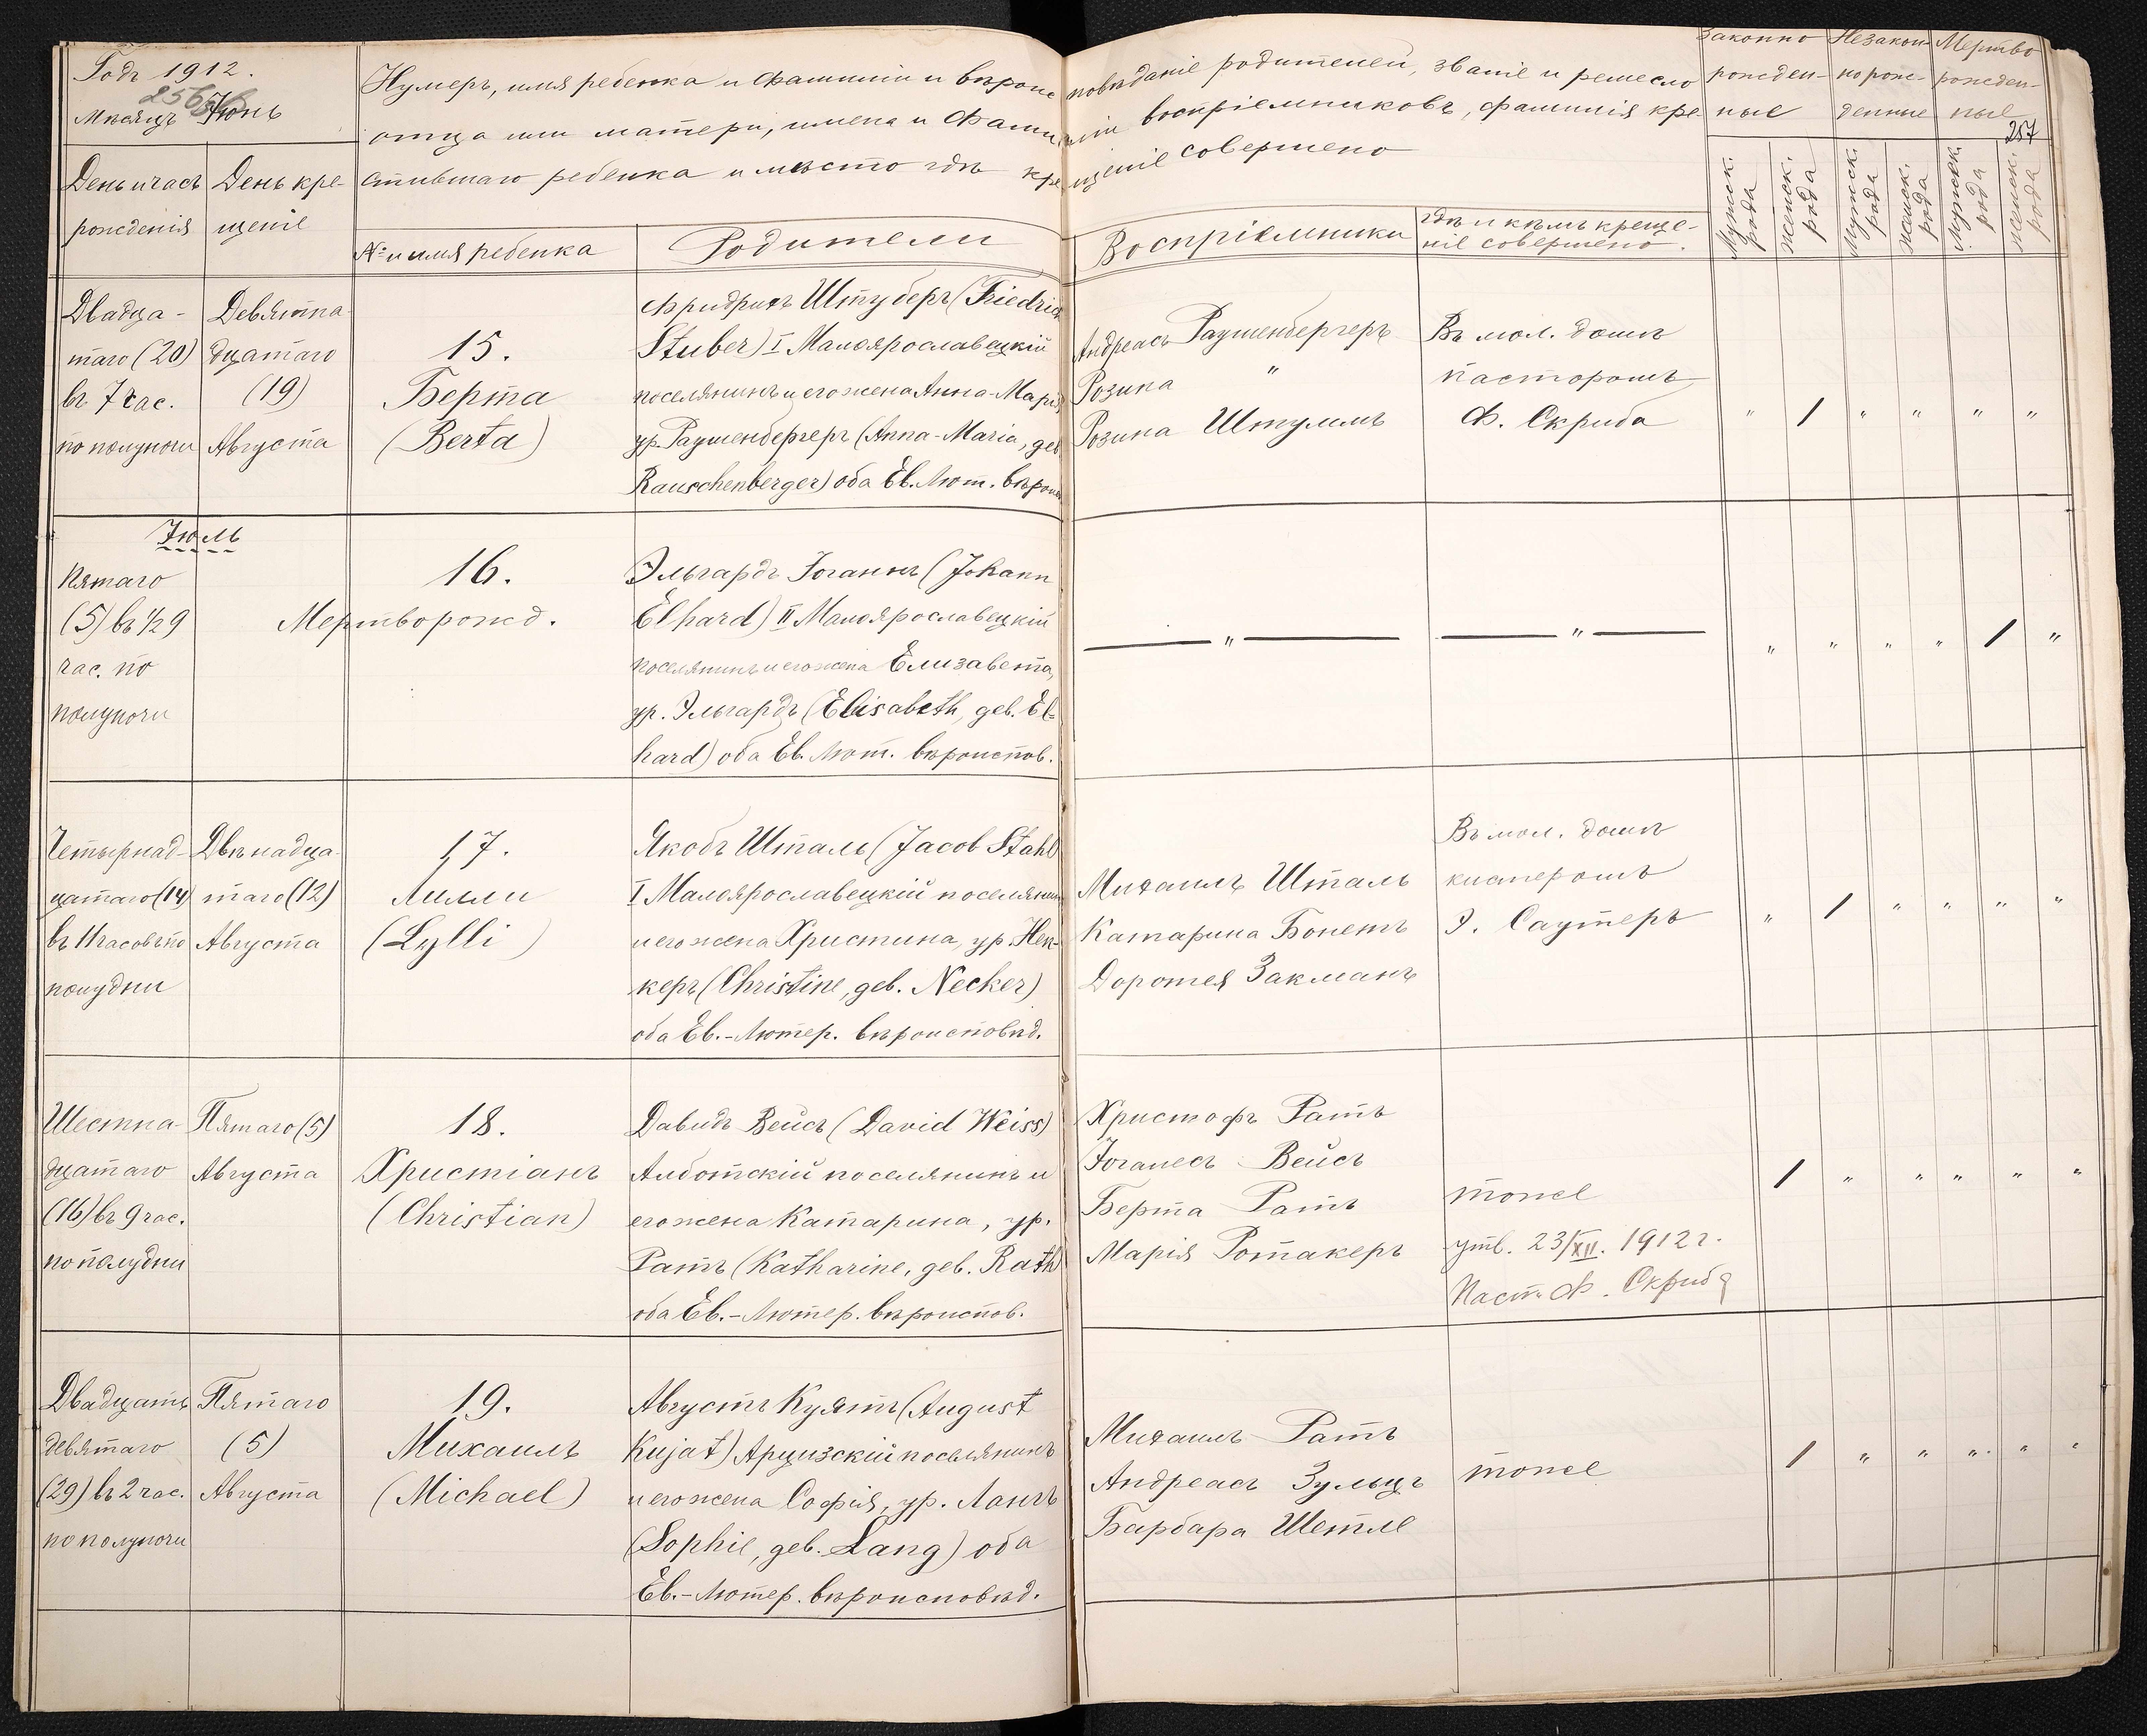 Годъ 1912.
256
Мѣсяцъ Іюнь
День и часъ рожденія
День крещенiе
Нумеръ, имя ребенка и фамиліи и вѣроисповѣданіе родителей, званіе и ремесло
отца или матери, имена и фамиліи воспріемниковъ, фамилія кре-
стившаго ребенка и мѣсто гдѣ крещеніе совершено
№ и имя ребенка
Родители
Воспріемники
гдѣ и кѣмъ креще-
ніе совершено.
Законно
рожден-
ные
Незакон-
но рож-
денные
Мертво
рожден-
ные
257
Мужск. рода
женск. рода
Мужск. рода
женск. рода
Мужск. рода
женск. рода
Двадца-
таго (20)
въ 7 час.
по полуночи
Девятна-
дцатаго
(19)
Августа
15.
Берта
(Berta)
Фридрихъ Штуберъ (Friedrich
Stuber) I Малоярославецкій
поселянинъ и его жена Анна-Марія
ур. Раушенбергеръ (Anna-Maria, geb.
Rauschenberger) оба Ев. Лют. вѣроисп
Андреасъ Раушенбергеръ
Розина "
Розина Штумпъ
Въ мол. домѣ
пасторомъ
Ф. Скриба
" / " " " "
Іюль
Пятаго
(5) въ ½ 9
час. по
полуночи
16.
Мертворожд.
Эльгардъ Іоганнъ (Johann
Elhard) II Малоярославецкій
поселянинъ и его жена Елизавета,
ур. Эльгардъ (Elisabeth, geb. El-
hard) оба Ев. Лют. вѣроиспов.
— " —
— " —
" " " " / "
Четырнад-
цатаго (14)
въ 11 часовъ по
полудни
Двѣнадца-
таго (12)
Августа
17.
Лилли
(Lylli)
Якобъ Шталь (Jacob Stahl)
I Малоярославецкій поселянинъ
и его жена Христина, ур. Нек-
керъ (Christine, geb. Necker)
оба Ев.-Лютер. вѣроисповѣд.
Михаилъ Шталь
Катарина Бонетъ
Доротея Закманъ
Въ мол. домѣ
кистеромъ
Э. Саутеръ
" / " " " "
Шестна-
дцатаго
(16) въ 9 час.
по полудни
Пятаго (5)
Августа
18.
Христіанъ
(Christian)
Давидъ Вейсъ (David Weiss)
Алботскій поселянинъ и
его жена Катарина, ур.
Ратъ (Katharine, geb. Rath)
оба Ев.-Лютер. вѣроиспов.
Христофъ Ратъ
Іоганесъ Вейсъ
Берта Ратъ
Марія Ротакеръ
тоже
утв. 23/XII. 1912 г.
Паст. Ф. Скриба
/ " " " " "
Двадцать
девятаго
(29) въ 2 час.
по полуночи
Пятаго
(5)
Августа
19.
Михаилъ
(Michael)
Августъ Куятъ (August
Kujat) Арцизскій поселянинъ
и его жена Софія, ур. Лангъ
(Sophie, geb. Lang) оба
Ев.-Лютер. вѣроисповѣд.
Михаилъ Ратъ
Андреасъ Зульцъ
Барбара Шетле
тоже
/ " " " " "